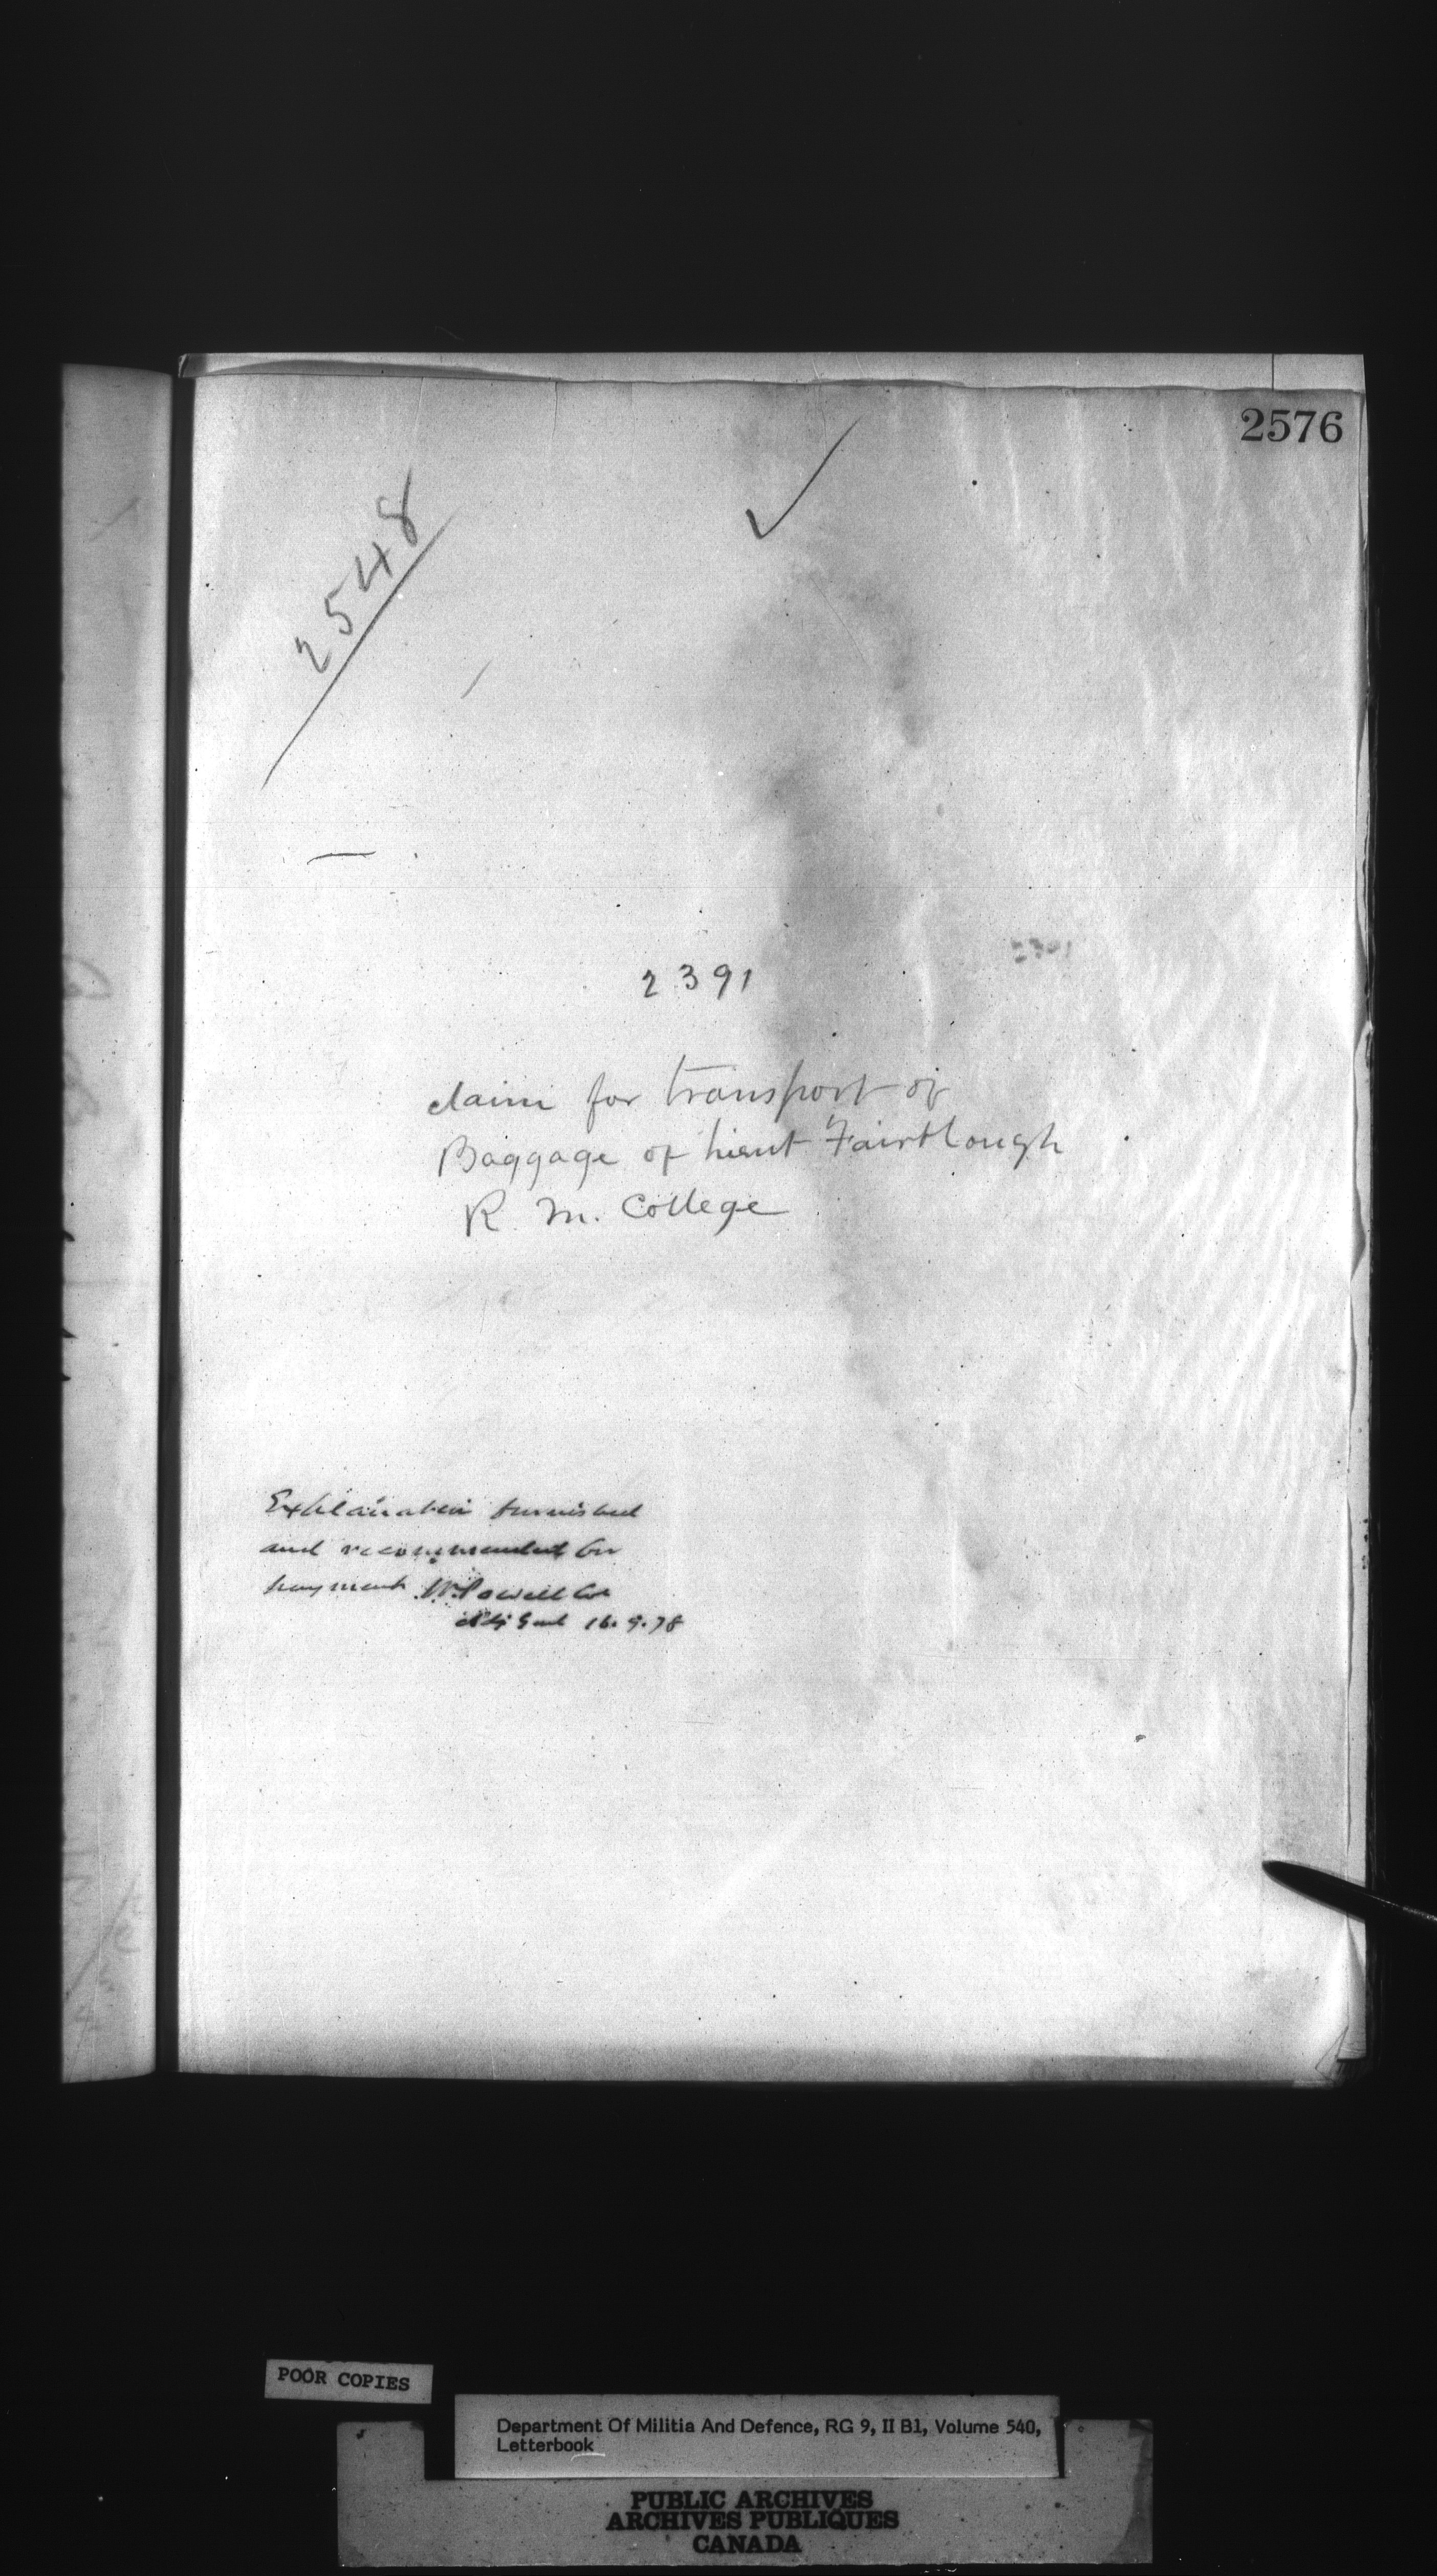 2576
2548
2391
claim for transport of
Baggage of Lieut Fairtlough
R. M. College
Explanation furnished
and recommended for
payment W. Powell Col
Adj Genl 16.9.78
POOR COPIES
Department Of Militia And Defence, RG 9, II B1, Volume 540,
Letterbook
PUBLIC ARCHIVES
ARCHIVES PUBLIQUES
CANADA